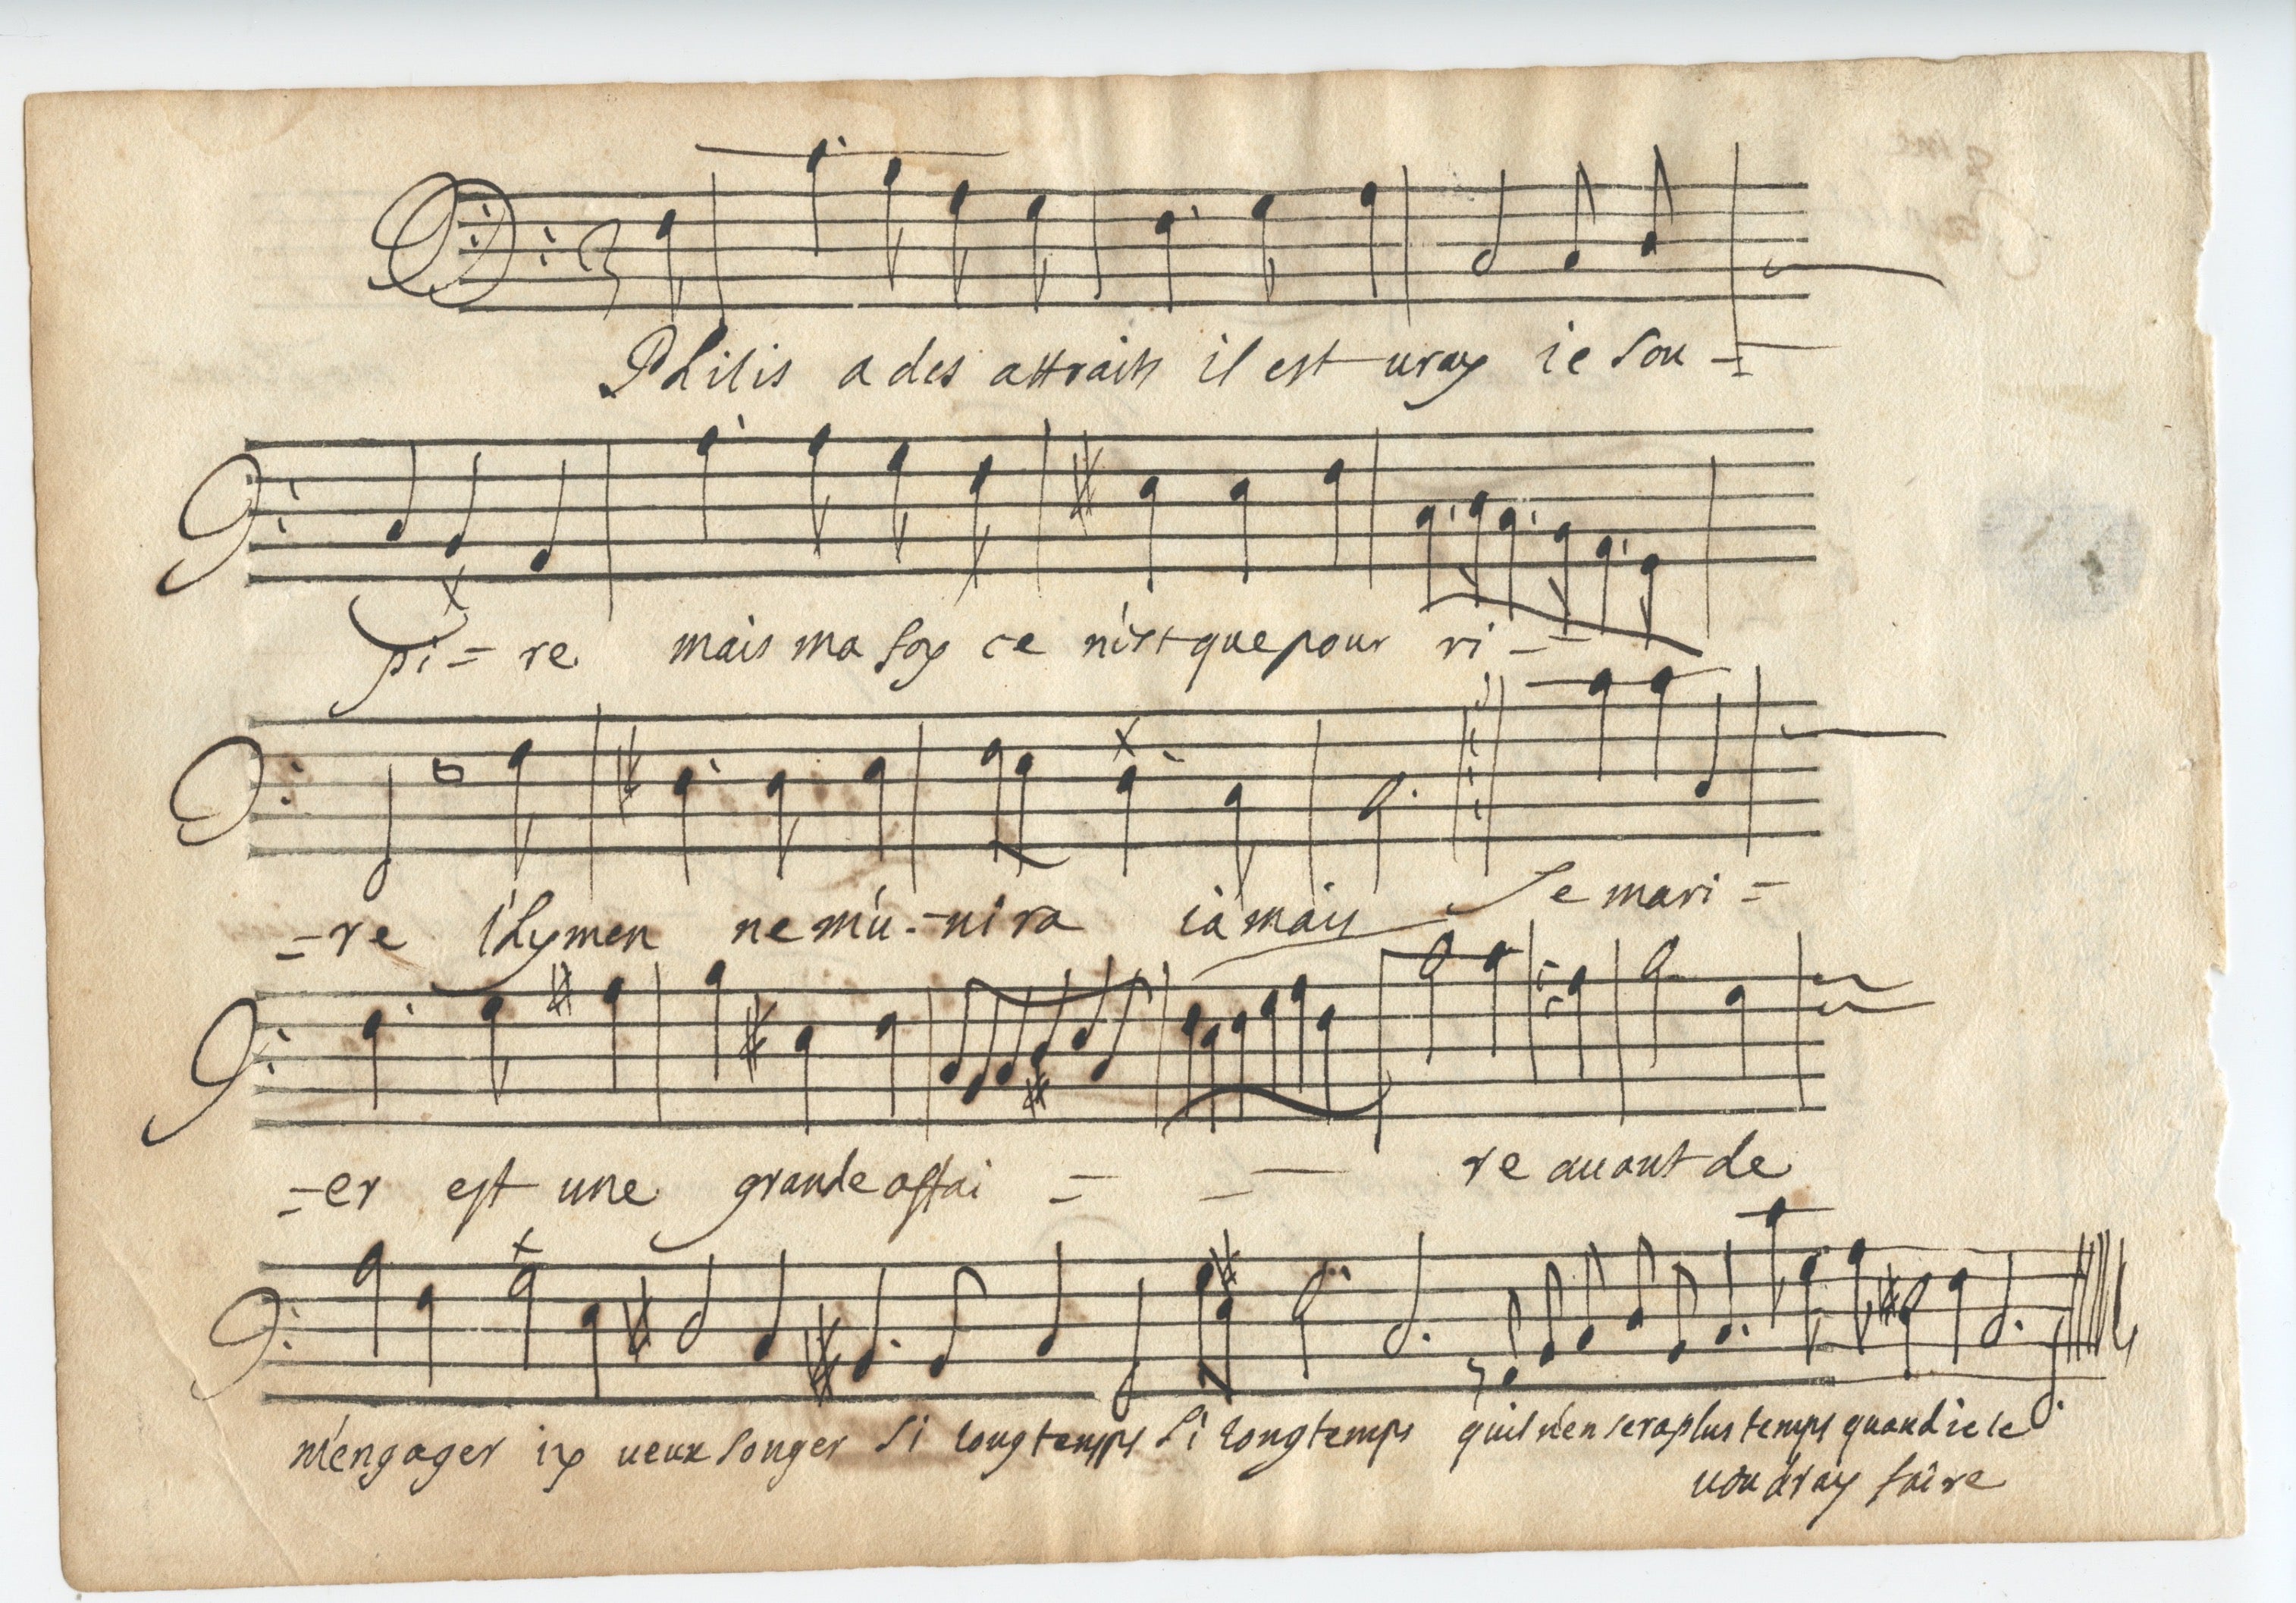 Philis a des attraits il est uray ie sou -
pi = re mais ma foy ce n'est que pour ri - =
= re l'hymen ne m'u - nira iamais Se mari =
= er est une grande affai = = re auant de
m'engager iy ueux songer si longtemps si longtemps quil n'en sera plus temps quand ie le
uoudray faire